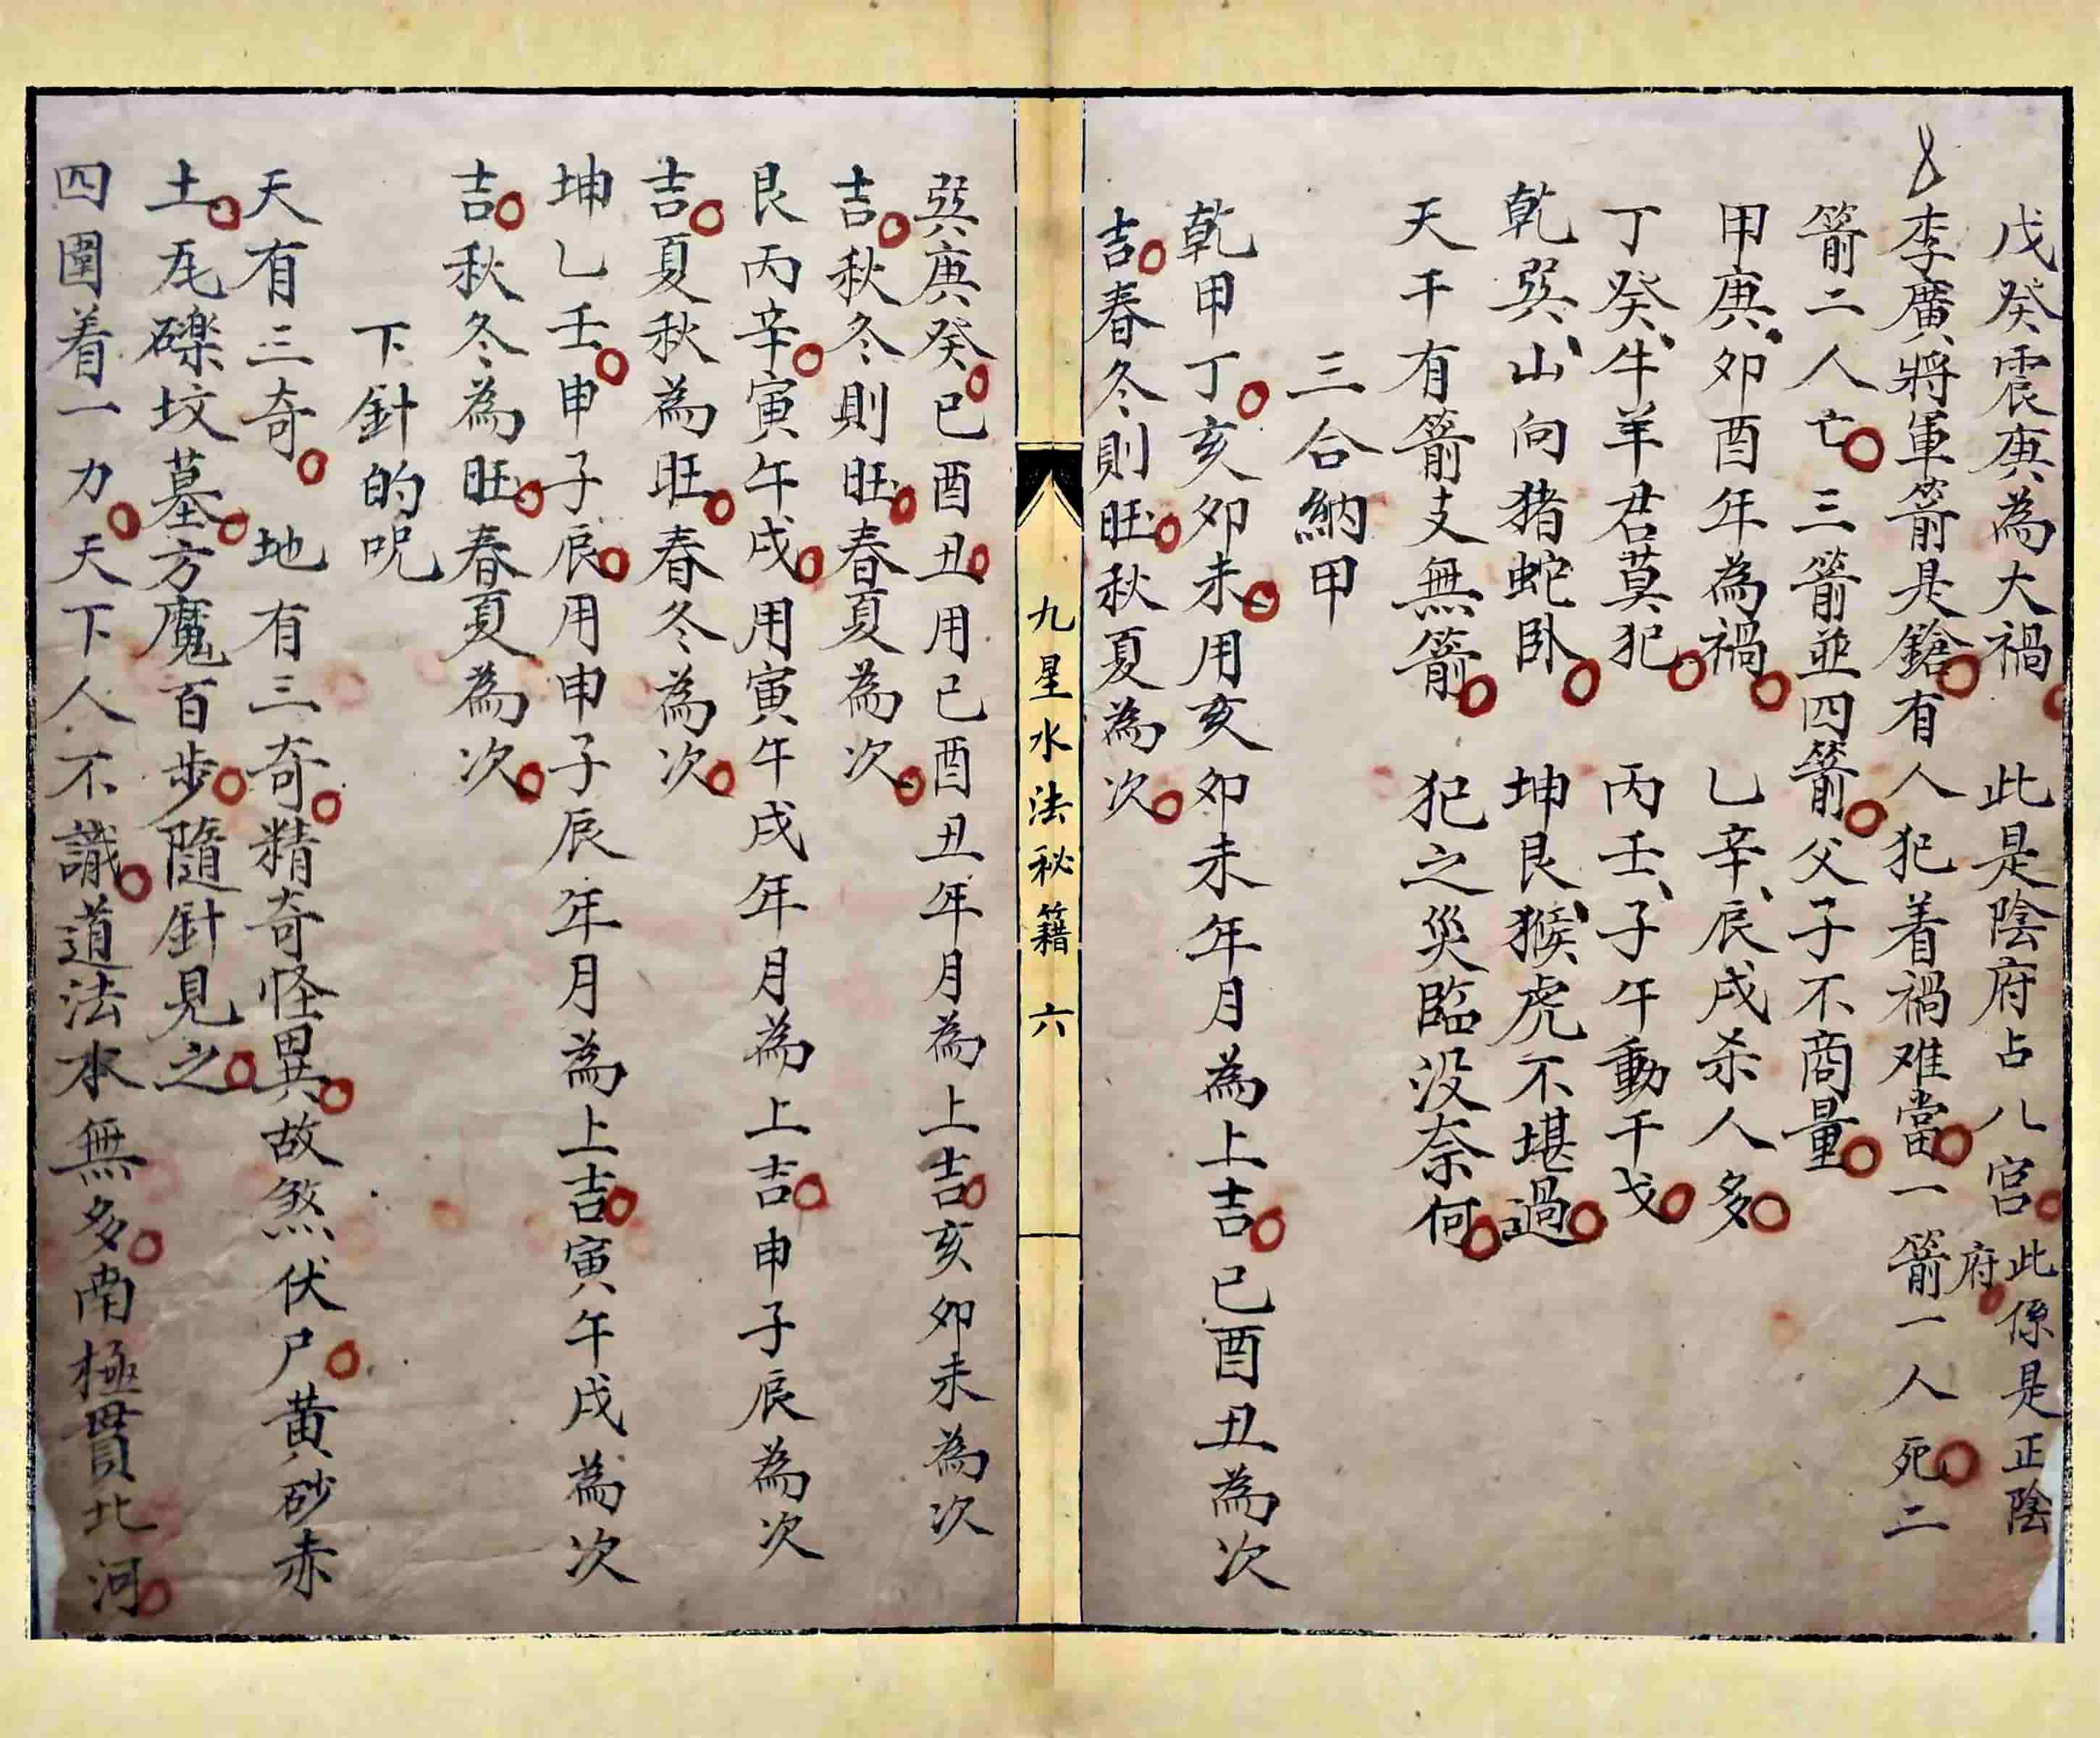 戊癸震庚為大禍　此是陰府占八宮　此係是正陰府
李廣將軍箭是鎗有人犯着禍难當一箭一人死二
箭二人亡三箭並四箭父子不商量
甲庚卯酉年為禍　乙辛辰戌杀人多
丁癸牛羊君莫犯　丙壬子午動干戈
乾巽山向猪蛇卧　坤艮猴虎不堪過
天干有箭支無箭　犯之災臨没奈何
三合納甲
乾甲丁亥卯未用亥卯未年月為上吉巳酉丑為次
吉春冬則旺秋夏為次
九星水法秘籍　六
巽庚癸巳酉丑用巳酉丑年月為上吉亥卯未為次
吉秋冬則旺春夏為次
艮丙辛寅午戌用寅午戌年月為上吉申子辰為次
吉夏秋為旺春冬為次
坤乙壬申子辰用申子辰年月為上吉寅午戌為次
吉秋冬為旺春夏為次
下針的呪
天有三奇　地有三奇精奇怪異故煞伏尸黄砂赤
土瓦礫坟墓方魔百步隨針見之
四圍着一力天下人不識道法水無多南極貫北河